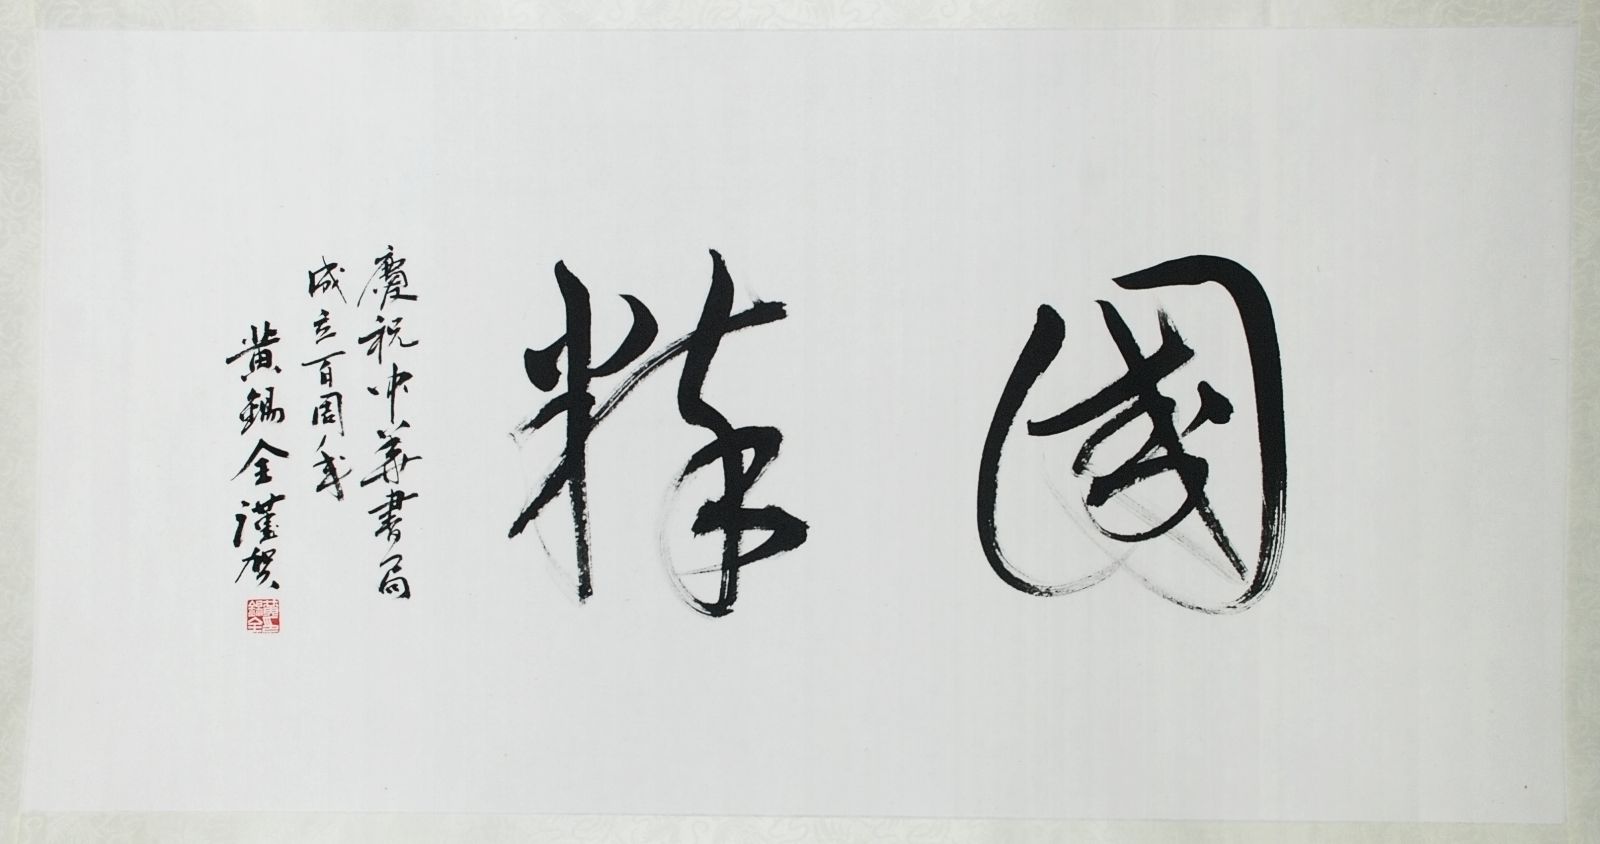 國粹
慶祝中華書局
成立百周年
黃錫全謹賀
黃錫全